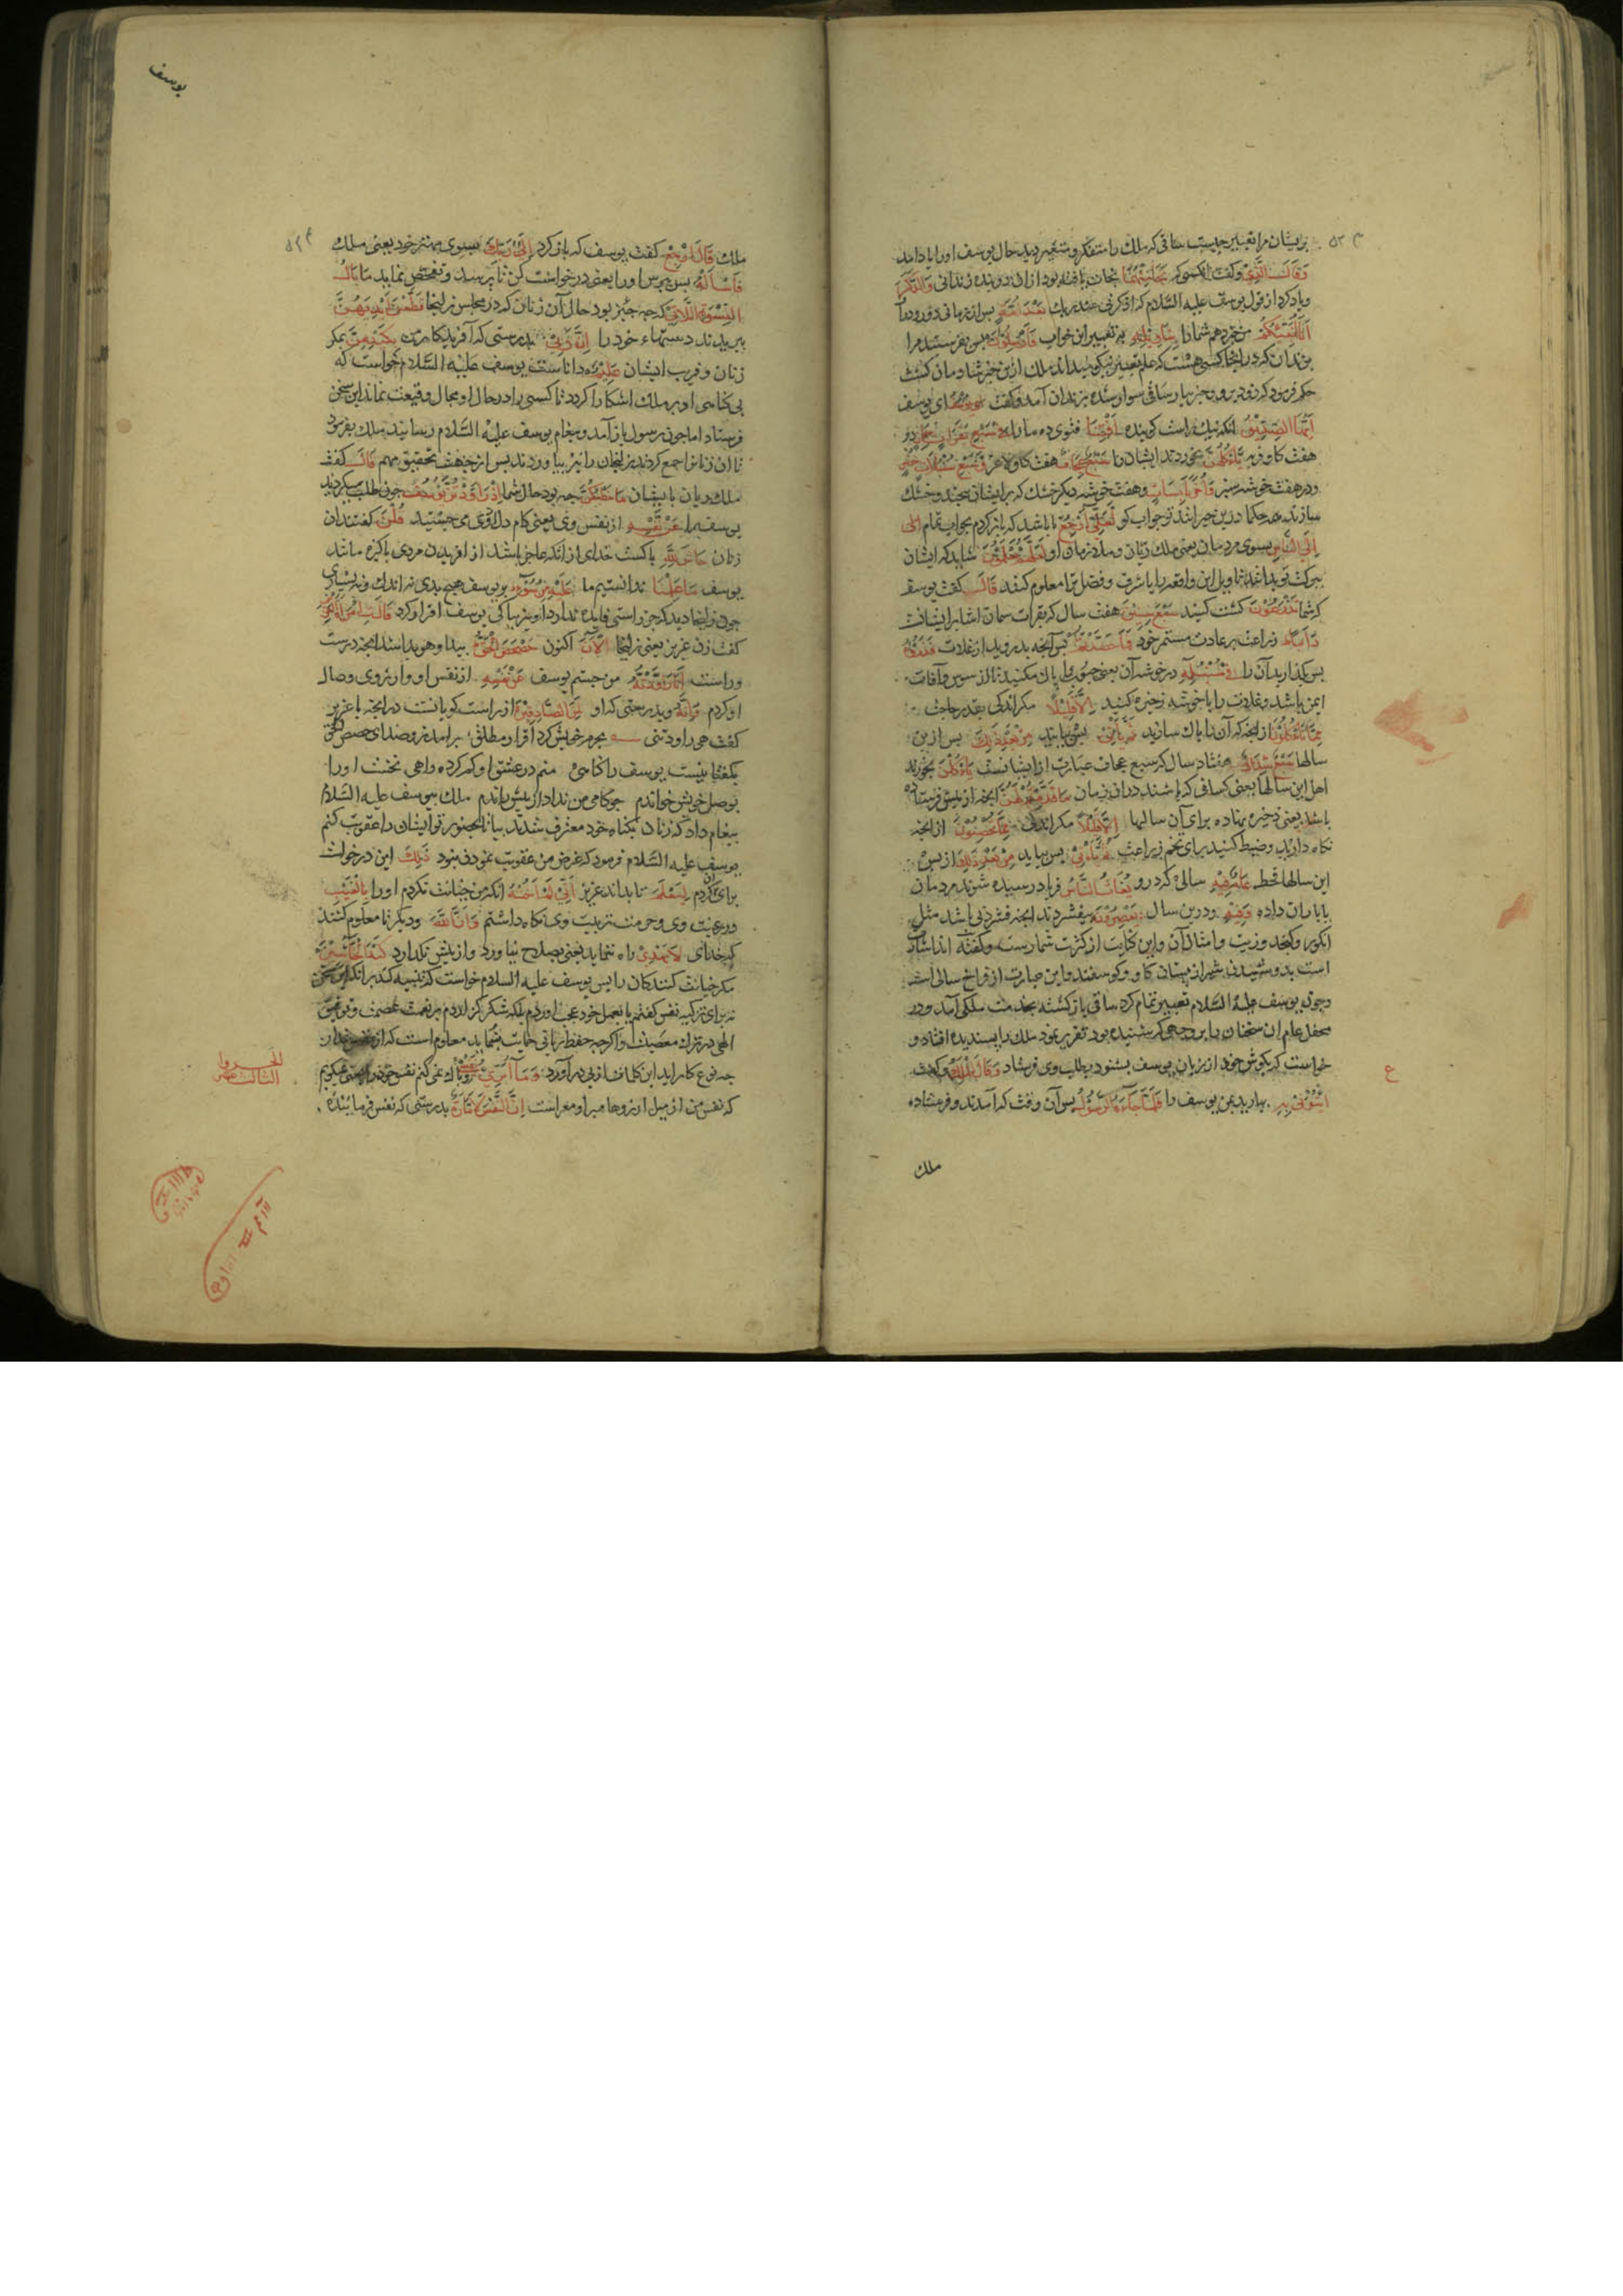 بریشان مرا تعبیر چیست ساقی که ملک را متفکر و متحیر دید حال یوسف او را یاد آمد
وَقَالَ الَّذِی و گفت آنکسی که نَجَا مِنْهُمَا نجات یافته بود از آن دو بنده زندانی وَادَّكَرَ
و یاد کرد از قول یوسف علیه السلام که اذکرنی عند ربک بَعْدَ أُمَّةٍ بس از زمانی دور و دراز
أَنَا أُنَبِّئُكُمْ من خبر دهم شما را بِتَأْوِيلِهِ به تعبیر این خواب فَأَرْسِلُونِ بس بفرستید مرا
بزندان که در آنجا کسی هست که علم تعبیر نیکو میداند ملک ازین خبر شادمان کشت
حکم فرمود که زود برو و خبر بیار ساقی سوار شده بزندان آمد و کفت یُوسُفُ ای یوسف
أَيُّهَا الصِّدِّيقُ ای نیک راست کوینده أَفْتِنَا فتوی ده ما را فِي سَبْعِ بَقَرَاتٍ سِمَانٍ در
هفت کاو فربه یَأْكُلُهُنَّ میخوردند ایشان را سَبْعٌ عِجَافٌ هفت کاو لاغر وَسَبْعِ سُنْبُلَاتٍ خُضْرٍ
و در هفت خوشه سبز وَأُخَرَ يَابِسَاتٍ و هفت خوشه دیکر خشک که بر ایشان بیچند و خشک
سازند همه حکما درین حیرانند تو جواب کو لَعَلِّي أَرْجِعُ تا باشد که باز کردم بجواب تمام
إِلَى النَّاسِ بسوی مردمان یعنی ملک ریان و ملازمان او لَعَلَّهُمْ يَعْلَمُونَ شاید که ایشان
ببرکت تو بدانند تاویل این واقعه را یا شرف و فضل ترا معلوم کنند قَالَ کفت یوسف
که شما تَزْرَعُونَ کشت کنید سَبْعَ سِنِينَ هفت سال که بقرات سمان اشارت ایشانست
دَأَبًا زراعت بر عادت مستمر خود فَمَا حَصَدْتُمْ بس آنچه بدروید از غلات فَذَرُوهُ
بس بکذارید آن را فِي سُنْبُلِهِ در خوشه آن یعنی حبوب را پاک مکنید تا از سوس و آفات
ایمن باشد و غلات را با خوشه ذخیره کنید إِلَّا قَلِيلًا مکر اندکی بقدر حاجت
مِمَّا تَأْكُلُونَ از آنچه که آن را پاک سازید ثُمَّ يَأْتِي بس بیاید مِنْ بَعْدِ ذَلِكَ بس ازین
سالها سَبْعٌ شِدَادٌ هفت سال که سبع عجاف عبارت از ایشانست يَأْكُلْنَ بخورند
اهل این سالها یعنی کسانی که باشند در آن زمان مَا قَدَّمْتُمْ لَهُنَّ آنچه از پیش فرستاده
باشید یعنی ذخیره نهاده برای آن سالها إِلَّا قَلِيلًا مکر اندکی مِمَّا تُحْصِنُونَ از آنچه
نکاه دارید و ضبط کنید برای تخم زراعت ثُمَّ يَأْتِي بس بیاید مِنْ بَعْدِ ذَلِكَ از بس
این سالها قحط عَامٌ فِيهِ سالی که درو يُغَاثُ النَّاسُ فریاد رسیده شوند مردمان
بباران داده وَفِيهِ و درین سال يَعْصِرُونَ بیفشردند آنچه فشردنی باشد مثل
انکور و کنجد و زیت و امثال آن و این کنایت از کثرت ثمارست و کفته اند اشارت
است بدوشیدن شیر از پستان کاو و کوسفند و این عبارت از فراخ سالی است
و چون یوسف علیه السلام تعبیر تمام کرد ساقی باز کشته بخدمت ملک آمد و در
محفل عام آن سخنان را بر وجهی که شنیده بود تقریر نمود ملک را پسندیده افتاد و
خواست که بکوش خود از زبان یوسف بشنود بطلب وی فرستاد وَقَالَ الْمَلِكُ و کفت
ائْتُونِي بِهِ بیارید بمن یوسف را فَلَمَّا جَاءَهُ الرَّسُولُ بس آن وقت که آمدند و فرستاده
ملک
ع
یوسف
ملک قَالَ ارْجِعْ کفت یوسف که باز کرد إِلَى رَبِّكَ بسوی مهتر خود یعنی ملک
فَاسْأَلْهُ بس ببرس او را یعنی درخواست کن تا بپرسد و تفحص نماید مَا بَالُ
النِّسْوَةِ اللَّاتِي که چه چیز بود حال آن زنان که در مجلس زلیخا قَطَّعْنَ أَيْدِيَهُنَّ
ببریدند دستهاء خود را إِنَّ رَبِّي بدرستی که آفریدکار من بِكَيْدِهِنَّ بمکر
زنان و فریب ایشان عَلِيمٌ دانا ست یوسف علیه السلام خواست که
بی کناهی او بر ملک آشکارا کردد تا کسی را در حال او مجال وقیعت نماند این سخن
فرستاد اما چون رسول باز آمد و پیغام یوسف علیه السلام رسانید ملک بفرمود
تا آن زنان را جمع کردند و زلیخا را نیز بیاوردند بس از جهت تحقیق مهم قَالَ کفت
ملک ریان با ایشان مَا خَطْبُكُنَّ چه بود حال شما إِذْ رَاوَدْتُنَّ يُوسُفَ چون طلب میکردید
یوسف را عَنْ نَفْسِهِ از نفس وی یعنی کام دل از وی می جستید قُلْنَ کفتند آن
زنان حَاشَ لِلَّهِ پاکست خدای از آنکه عاجز باشد از آفریدن مردی پاکیزه مانند
یوسف مَا عَلِمْنَا ندانستیم ما عَلَيْهِ مِنْ سُوءٍ بر یوسف هیچ بدی نه اندک و نه بسیاری
چون زلیخا دید که جز راستی فایده ندارد او نیز بپاکی یوسف اقرار کرد قَالَتِ امْرَأَةُ الْعَزِيزِ
کفت زن عزیز یعنی زلیخا الْآنَ اکنون حَصْحَصَ الْحَقُّ پیدا و هویدا شد آنچه درست
و راست أَنَا رَاوَدْتُهُ من جستم یوسف عَنْ نَفْسِهِ از نفس او و آرزوی وصال
او کردم وَإِنَّهُ و بدرستی که او لَمِنَ الصَّادِقِينَ از راست کویانست در آنچه با عزیز
کفت هی راودتنی بجرم خویش کرد اقرار مطلق برآمد زو صدای حصحص الحق
بکفتا نیست یوسف را کناهی منم در عشق او کم کرده راهی نخست او را
بوصل خویش خواندم چو کام من نداد از پیش راندم ملک بیوسف علیه السلام
پیغام داد که زنان بکناه خود معترف شدند بیا تا بحضور تو ایشان را عقوبت کنم
یوسف علیه السلام فرمود که غرض من عقوبت نمودن نبود ذَلِكَ این درخواست
برای آن کردم لِيَعْلَمَ تا بداند عزیز أَنِّي لَمْ أَخُنْهُ آنکه من خیانت نکردم او را بِالْغَيْبِ
در غیبت وی و حرمت تربیت وی نکاه داشتم وَأَنَّ اللَّهَ و دیکر تا معلوم کنند
که خدای لَا يَهْدِي راه ننماید یعنی بصلاح نیاورد و از پیش نکذارد كَيْدَ الْخَائِنِينَ
مکر خیانت کنندکان را بس یوسف علیه السلام خواست که تنبیه کند بر آنکه این سخن
نه برای تزکیه نفس کفتم یا بعمل خود عجب آوردم بلکه شکر کزاردم بر نعمت عصمت و توفیق
الهی در ترک معصیت و اکر چه حفظ ربانی حمایت ننماید معلوم است که از نفس
چه نوع کار آید این کلمات از پی درآورد وَمَا أُبَرِّئُ نَفْسِي و پاک نمی کنم نفس خود را
که نفس من از میل آرزوها مبرا و معراست إِنَّ النَّفْسَ لَأَمَّارَةٌ بدرستی که نفس فرماینده
الجزو
الثالث عشر